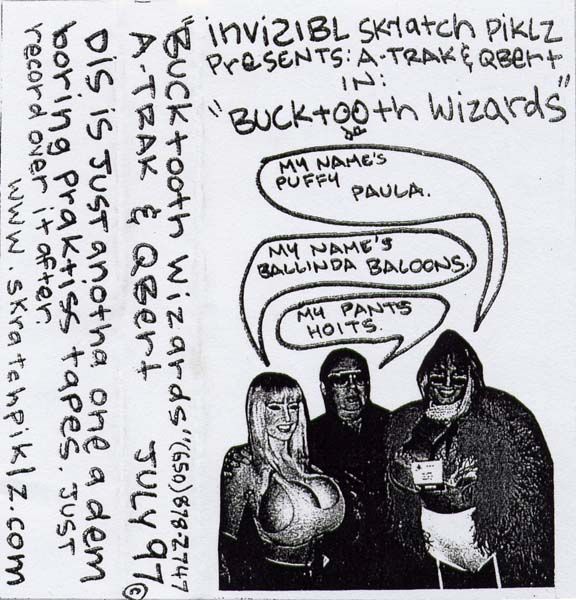 invizIBL skratch piklz
PresENTS: A-TRAK & QBert
IN:
"Bucktooth Wizards"
MY NAME'S
PUFFY
PAULA.
MY NAME'S
BALLINDA BALOONS.
MY PANTS
HOITS.
"Bucktooth Wizards" (650)878-2747
A-TRAK & QBert JULY 97 ©
Dis is Just anotha one a dem
boring praktiss tapes. Just
record over it after.
www.skratchpiklz.com